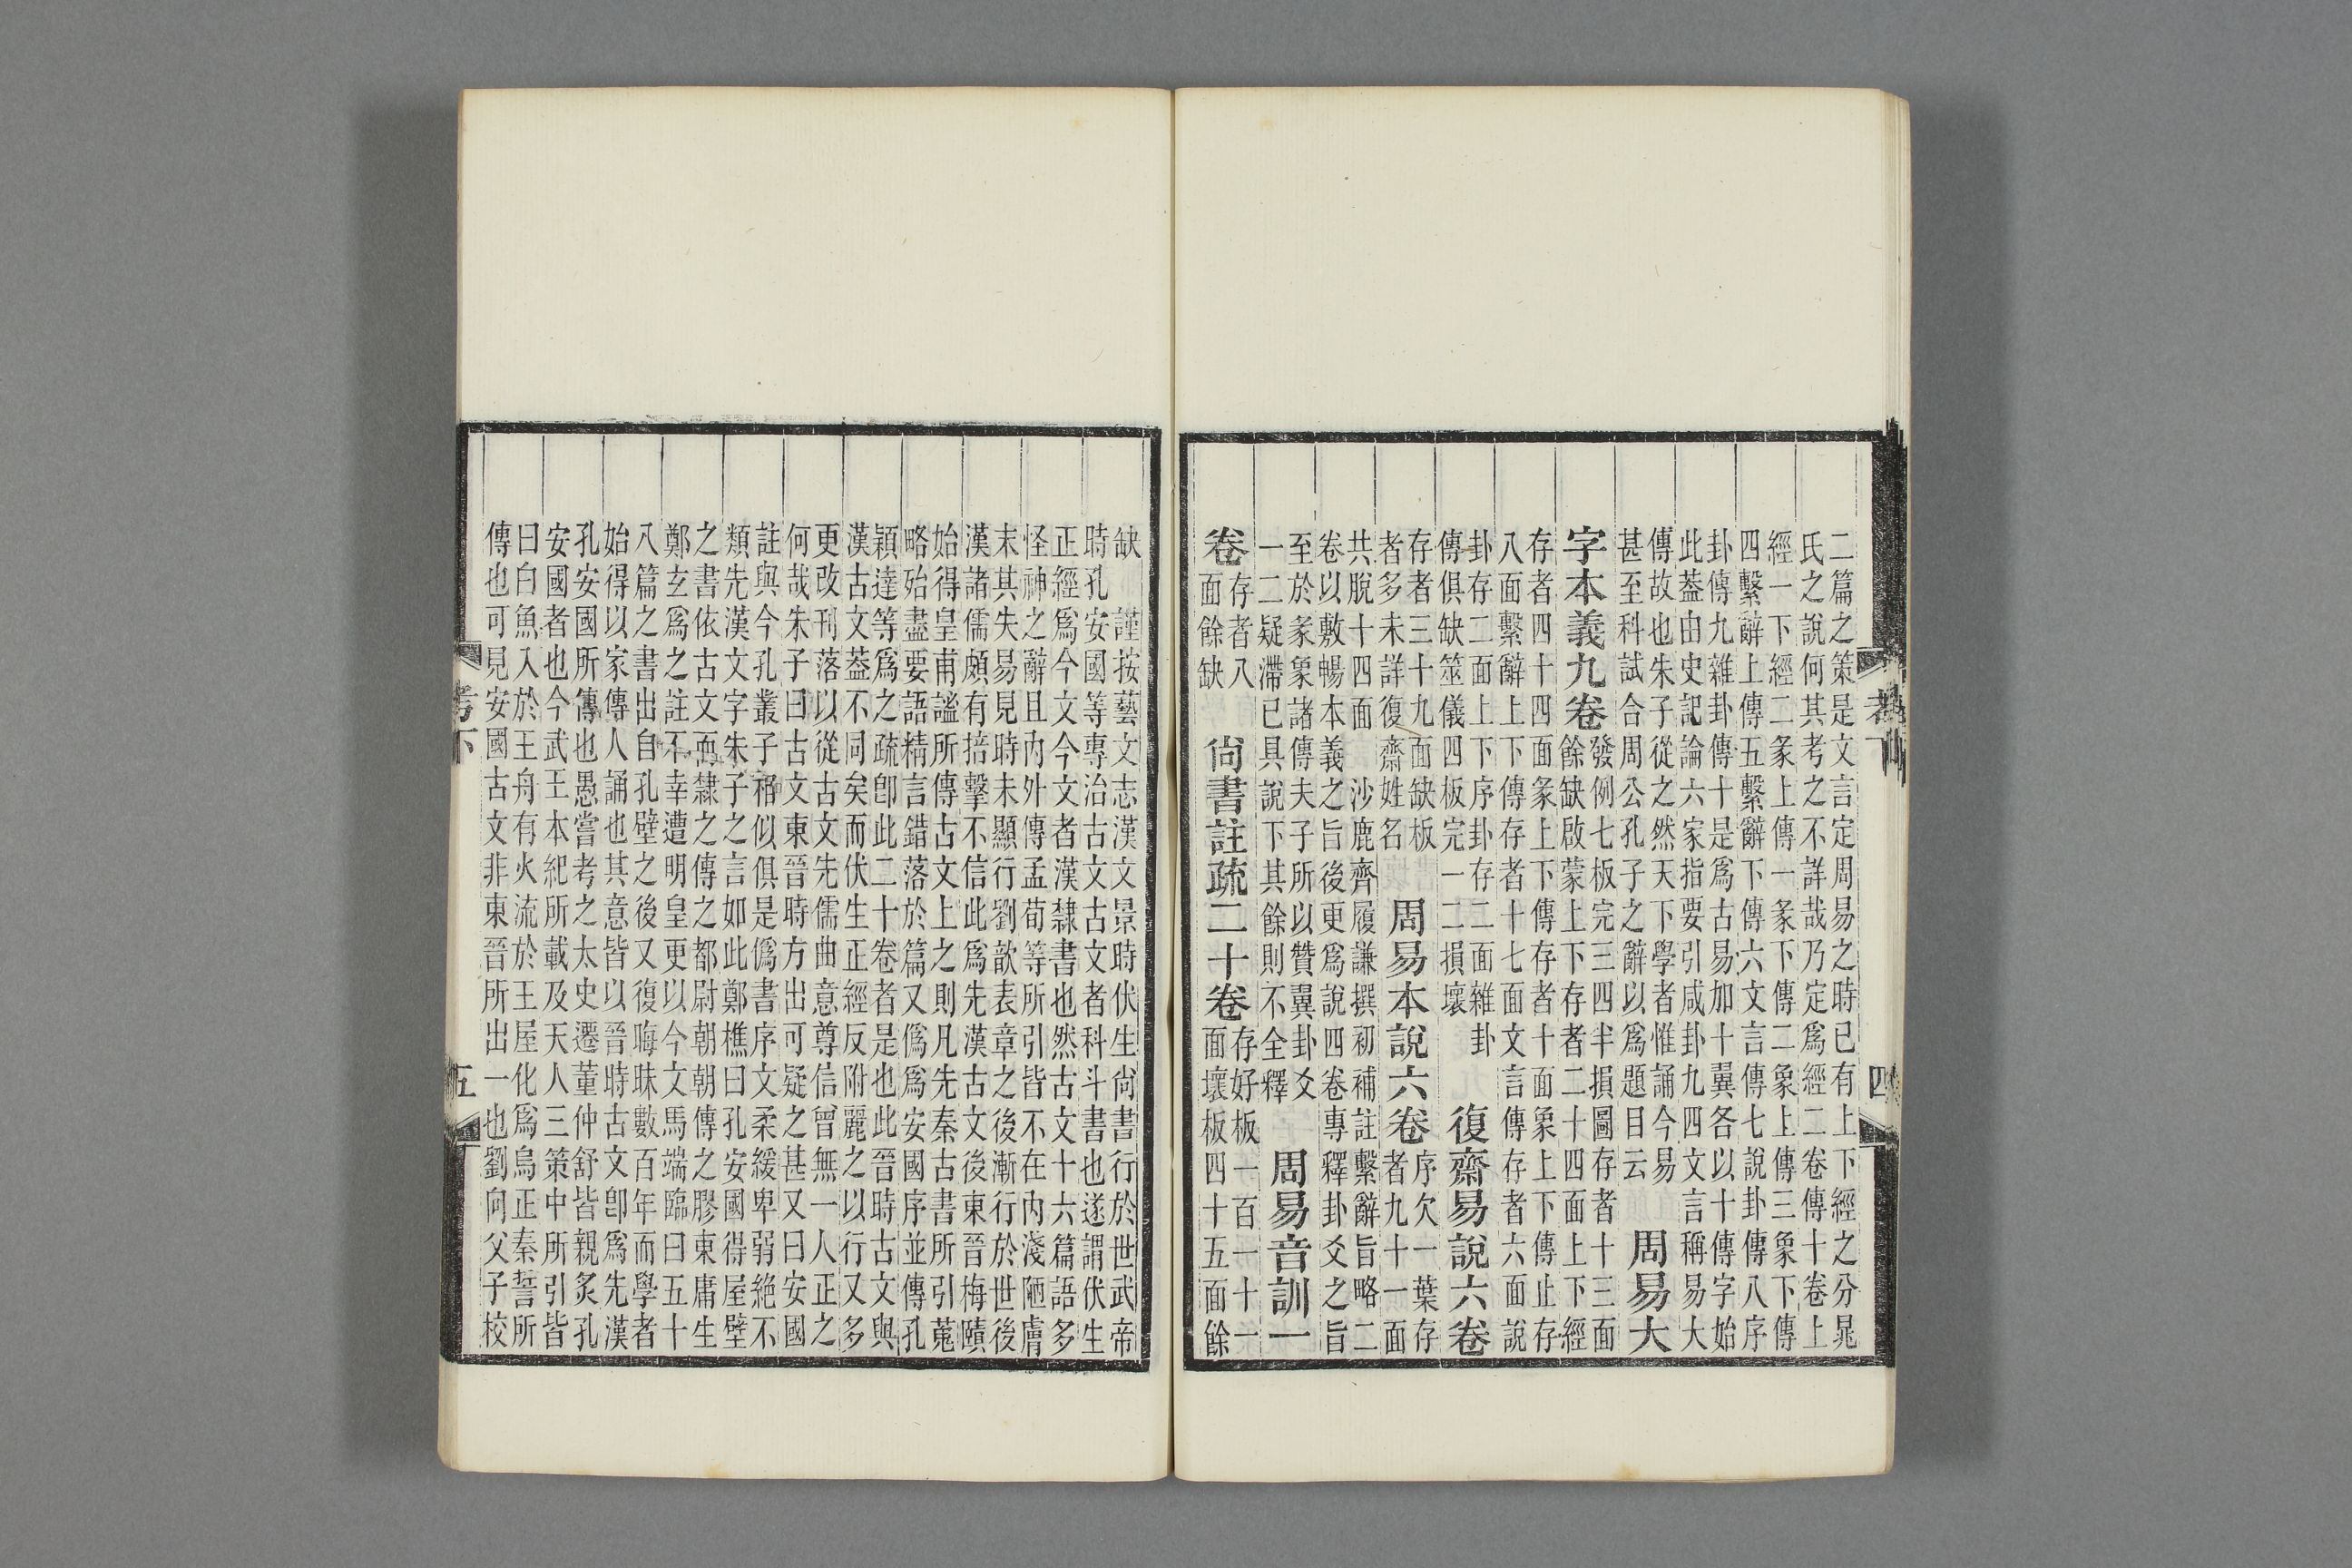 二篇之策是文言定周易之時已有上下經之分晁
氏之說何其考之不詳哉乃定爲經二卷傳十卷上
經一下經二彖上傳一彖下傳二象上傳三象下傳
四繫辭上傳五繫辭下傳六文言傳七說卦傳八序
卦傳九雜卦傳十是爲古易加十翼各以十傳字始
此葢由史記論六家指要引咸卦九四文言稱易大
傳故也朱子從之然天下學者惟誦今易
甚至科試合周公孔子之辭以爲題目云
周易大
字本義九卷
發例七板完三四半損圖存者十三面
餘缺啟蒙上下存者二十四面上下經
存者四十四面彖上下傳存者十面象上下傳止存
八面繫辭上下傳存者十七面文言傳存者六面說
卦存二面上下序卦存二面雜卦
傳俱缺筮儀四板完一二損壞
復齋易說六卷
存者三十九面缺板
者多未詳復齋姓名
周易本說六卷
序欠一葉存
者九十一面
共脫十四面 沙鹿齊履謙撰初補註繫辭旨略二
卷以敷暢本義之旨後更爲說四卷專釋卦爻之旨
至於彖象諸傳夫子所以贊翼卦爻
一二疑滯已具說下其餘則不全釋
周易音訓一
卷
存者八
面餘缺
尚書註疏二十卷
存好板一百一十一
面壞板四十五面餘
四
缺 謹按藝文志漢文景時伏生尚書行於世武帝
時孔安國等專治古文古文者科斗書也遂謂伏生
正經爲今文今文者漢隸書也然古文十六篇語多
怪神之辭且內外傳孟荀等所引皆不在內淺陋膚
末其失易見時未顯行劉歆表章之後漸行於世後
漢諸儒頗有掊擊不信此爲先漢古文後東晉梅賾
始得皇甫謐所傳古文上之則凡先秦古書所引蒐
略殆盡要語精言錯落於篇又僞爲安國序並傳孔
穎達等爲之疏卽此二十卷者是也此晉時古文與
漢古文葢不同矣而伏生正經反附麗之以行又多
更改刊落以從古文先儒曲意尊信曾無一人正之
何哉朱子曰古文東晉時方出可疑之甚又曰安國
註與今孔叢子相似俱是僞書序文柔緩卑弱絶不
類先漢文字朱子之言如此鄭樵曰孔安國得屋壁
之書依古文而隸之傳之都尉朝朝傳之膠東庸生
鄭玄爲之註不幸遭明皇更以今文馬端臨曰五十
八篇之書出自孔壁之後又復晦昧數百年而學者
始得以家傳人誦也其意皆以晉時古文卽爲先漢
孔安國所傳也愚嘗考之太史遷董仲舒皆親炙孔
安國者也今武王本紀所載及天人三策中所引皆
曰白魚入於王舟有火流於王屋化爲烏正秦誓所
傳也可見安國古文非東晉所出一也劉向父子校
考下
五